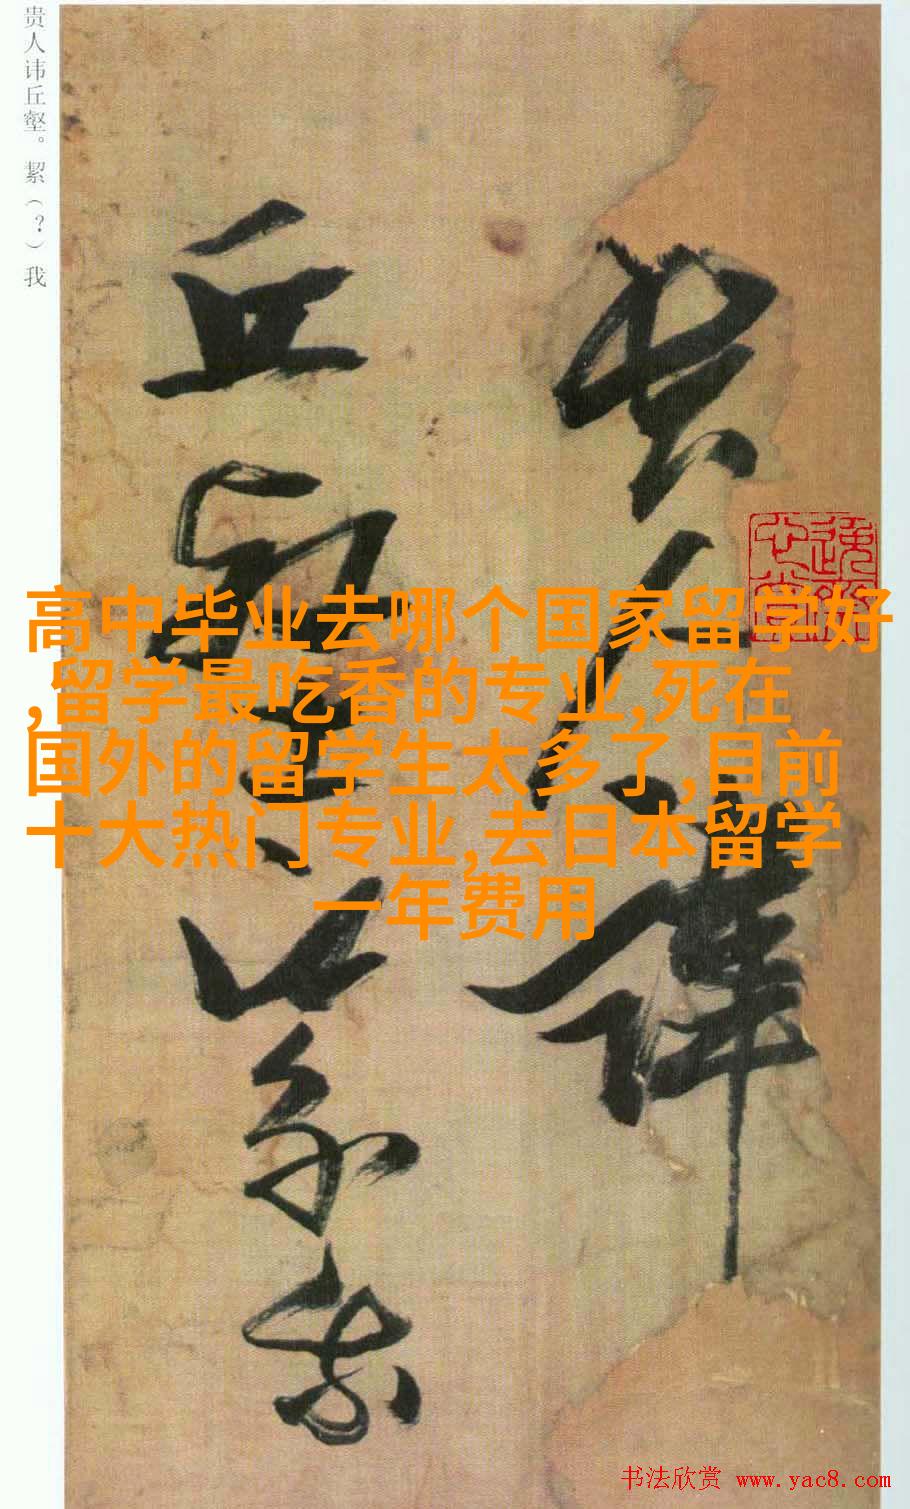 贵人讳丘壑。絜（？）我
贵人讳
丘壑。絜我
高中毕业去哪个国家留学好
,留学最吃香的专业,死在
国外的留学生太多了,目前
十大热门专业,去日本留学
一年费用
书法欣赏 www.yac8.com